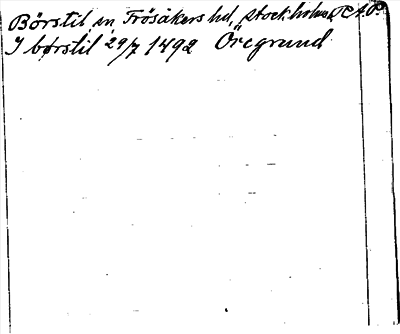 Börstil sn, Frösåkers hd, Stockholms l. A.P.
I børstil 29/7 1492 Öregrund